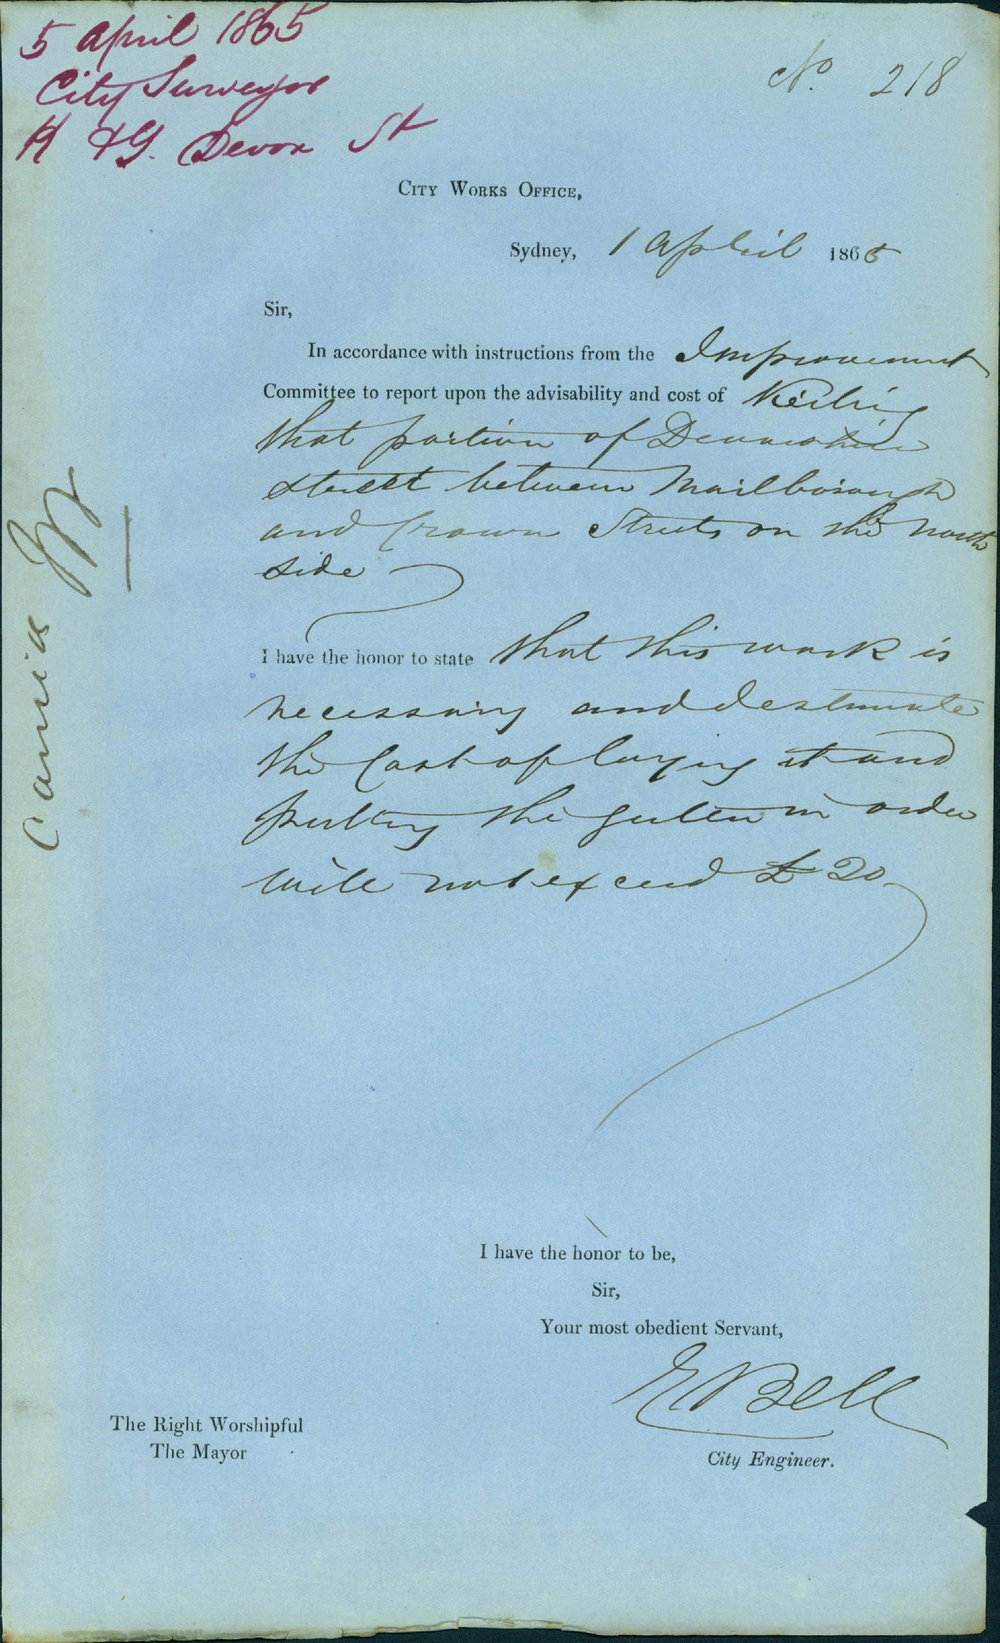 5 April 1865
City Surveyor
K & G. Devon St
No. 218
City Works Office,
Sydney, 1 April 1865
Sir,
In accordance with instructions from the Improvement
Committee to report upon the advisability and cost of Kerbing
that portion of Devonshire
street between Marlborough
and Crown Streets on the North
side
I have the honor to state that this work is
necessary and I estimate
the Cost of laying it and
putting the gutter in order
will not exceed £20
I have the honor to be,
Sir,
Your most obedient Servant,
E Bell
City Engineer.
The Right Worshipful
The Mayor
Carried